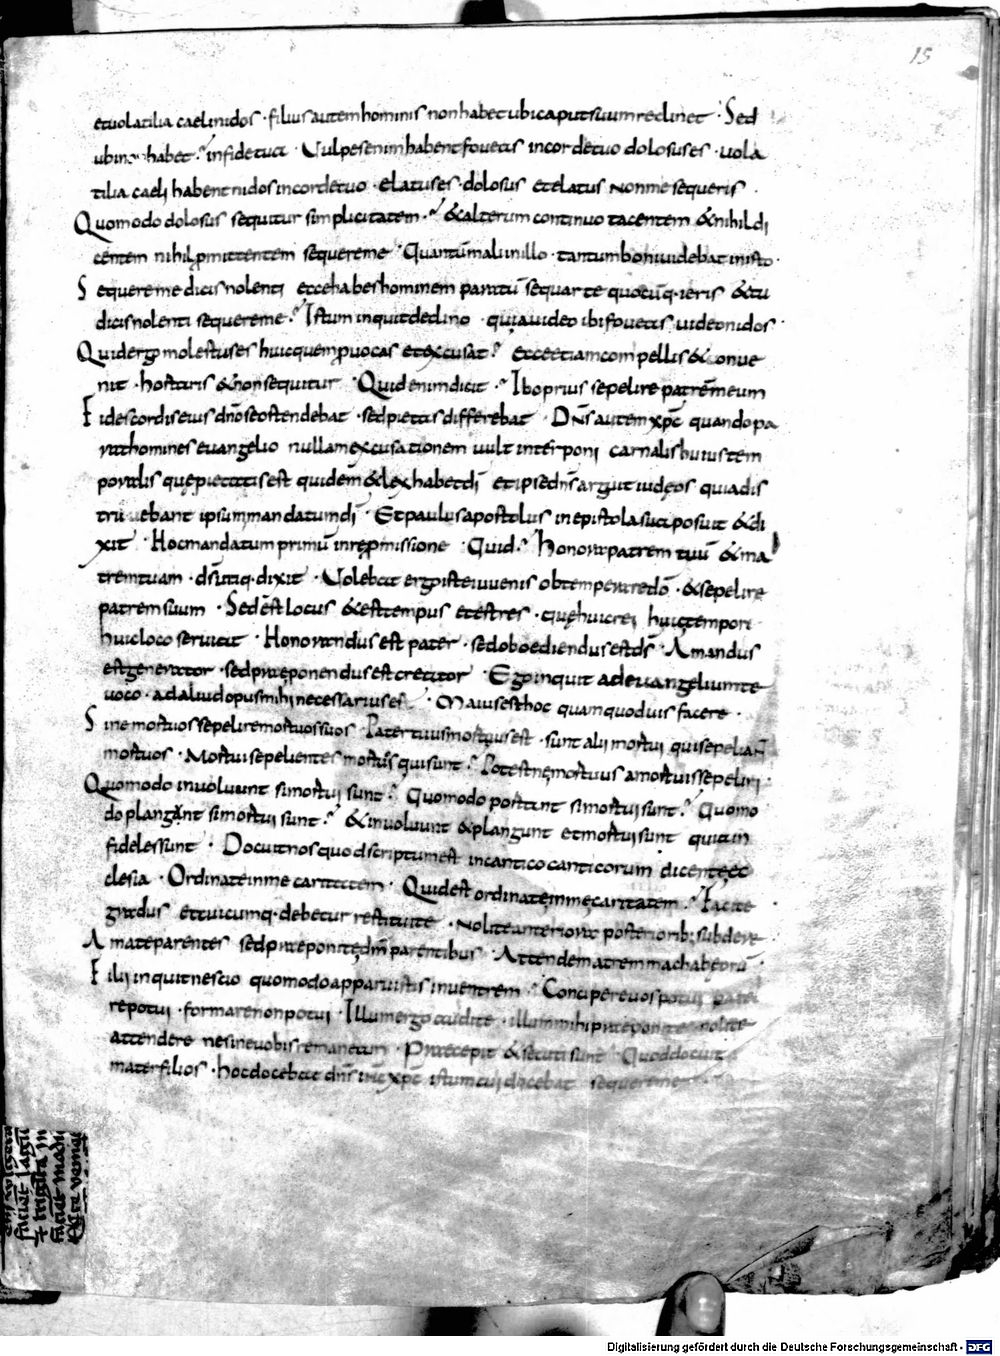 15
et uolatilia caeli nidos · filius autem hominis non habet ubi caput suum reclinet · Sed
ubi non habet ? In fide tua · Vulpes enim habent foueas in corde tuo dolosus es · uola
tilia caeli habent nidos in corde tuo · elatus es · dolosus et elatus non me sequeris ·
Quomodo dolosus sequitur simplicitatem ? & alterum continuo tacentem & nihil di
centem nihil ꝓmittentem sequere me · Quantū mali in illo · tantum boni uidebat in isto ·
Sequere me dicis nolenti ecce habes hominem paratū sequar te quocūq· ieris & tu
dicis nolenti sequere me ? Istum inquit declino · quia uideo ibi foueas uideo nidos ·
Quid ergo molestus es huic quem ꝓuocas et excusat ? Ecce etiam compellis & conue
nit · hortaris & non sequitur · Quid enim dicit ? Ibo prius sepelire patrē meum
Fides cordis eius dn̄o se ostendebat · sed pietas differebat · Dn̄s autem xp̄c quando pa
rat homines euangelio nullam excusationem uult interponi carnalis huius tem
poralis quę pietatis est quidem & lex habet dī et ipse dn̄s arguit iudęos quia dis
truebant ipsum mandatum dī · Et paulus apostolus in epistola sua posuit & di
xit · Hoc mandatum primū in reꝓmissione · Quid ? Honora patrem tuū & ma
trem tuam · ds̄ utiq· dixit · Volebat ergo iste iuuenis obtemperare dō · & sepelire
patrem suum · Sed est locus & est tempus et est res · quę huic rei huic tempori
huic loco seruiat · Honorandus est pater · sed oboediendus est ds̄ · Amandus
est generator · sed pręponendus est creator · Ego inquit ad euangelium te
uoco · ad aliud opus mihi necessarius es · Maius est hoc quam quod uis facere ·
Sine mortuos sepelire mortuos suos · Pater tuus mortuus est · sunt alii mortui qui sepeliant
mortuos · Mortui sepelientes mortuos qui sunt ? Potestnę mortuus a mortuis sepeliri ·
Quomodo inuoluunt si mortui sunt ? Quomodo portant si mortui sunt ? Quomo
do plangunt si mortui sunt ? & inuoluunt & plangunt et mortui sunt quia in
fideles sunt · Docuit nos quod scriptum est in cantico canticorum dicente ec
clesia · Ordinate in me caritatem · Quid est ordinatę in mę caritatem ? Facite
gradus et cuicumq· debetur restituite · Nolite anteriora posteriorib; subdere
Amate parentes sed pręponite dm̄ parentibus · Attende matrem machabęorū
Filii inquit nescio quomodo apparuistis in uentrem · Concipere uos potui pare
re potui · formare non potui · Illum ergo audite · illum mihi pręponite · nolite
attendere ne sine uobis remaneam · Pręcepit & secuti sunt · Quod docuit
mater filios · hoc docebat dn̄s ih̄c xp̄c istum cui dicebat sequere me
Digitalisierung gefördert durch die Deutsche Forschungsgemeinschaft - DFG